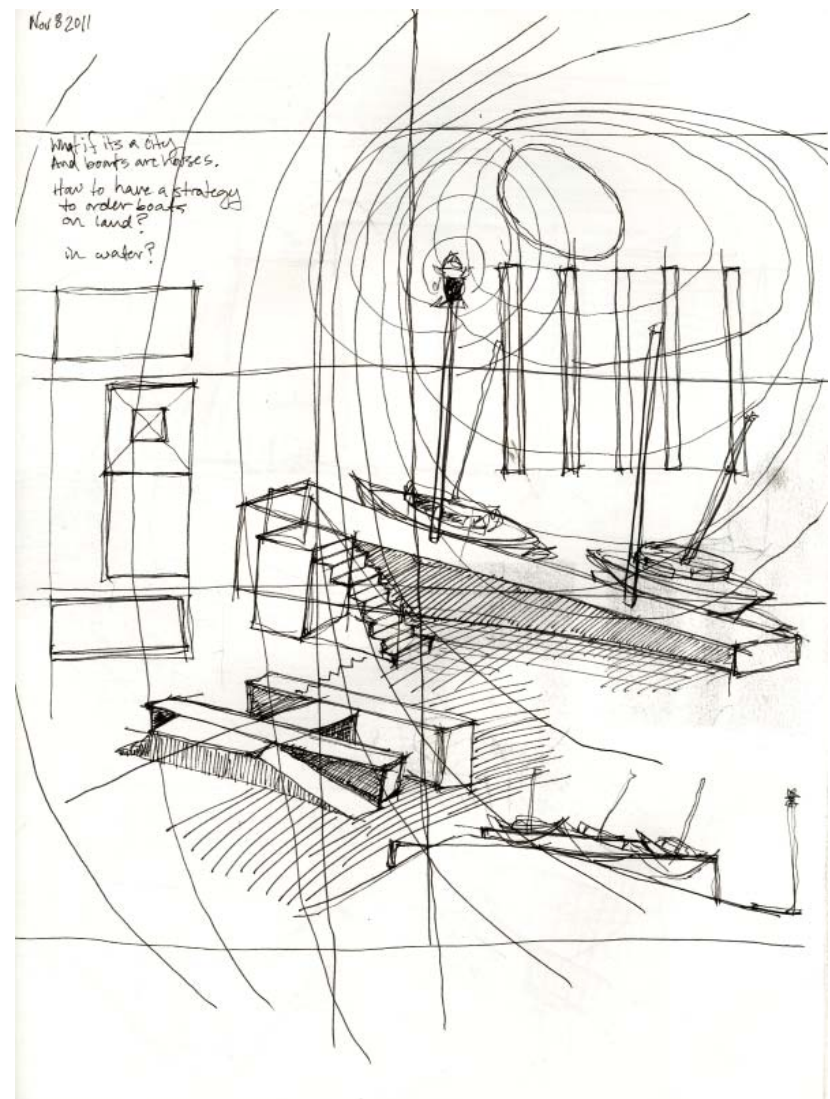 Nov 8 2011
What if its a city
And boats are houses.
How to have a strategy
to order boats
on land?
in water?